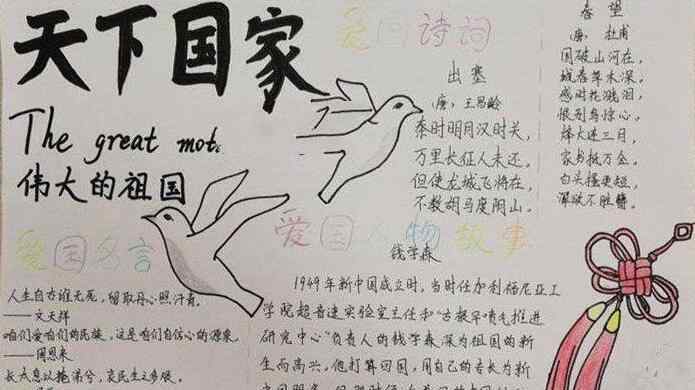 天下国家
The great mot
伟大的祖国
爱国诗词
出塞
(唐) 王昌龄
秦时明月汉时关,
万里长征人未还。
但使龙城飞将在,
不教胡马度阴山。
春望
(唐) 杜甫
国破山河在,
城春草木深。
感时花溅泪,
恨别鸟惊心。
烽火连三月,
家书抵万金。
白头搔更短,
浑欲不胜簪。
爱国名言
人生自古谁无死,留取丹心照汗青。
——文天祥
咱们爱咱们的民族,这是咱们自信心的源泉。
——周恩来
长太息以掩涕兮,哀民生之多艰。
爱国人物故事
钱学森
1949年新中国成立时,当时任加利福尼亚工
学院超音速实验室主任和"古根罕喷气推进
研究中心"负责人的钱学森深为祖国的新
生而高兴。他打算回国,用自己的专长为新